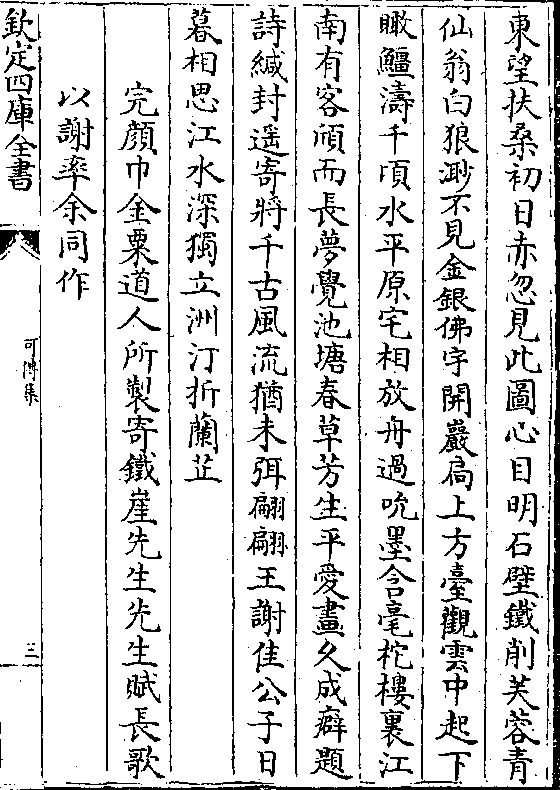 東望扶桑初日赤忽見此圖心目明石壁鐵削芙蓉青
仙翁白狼渺不見金銀佛宇開巖扃上方臺觀雲中起下
瞰鱷濤千頃水平原宅相放舟過吮墨含毫柁樓裏江
南有客頎而長夢覺池塘春草芳生平愛畫久成癖題
詩緘封遥寄將千古風流猶未弭翩翩王謝佳公子日
暮相思江水深獨立洲汀折蘭芷
完顔巾金粟道人所製寄鐵崖先生先生賦長歌
以謝率余同作
欽定四庫全書
可傳集
三